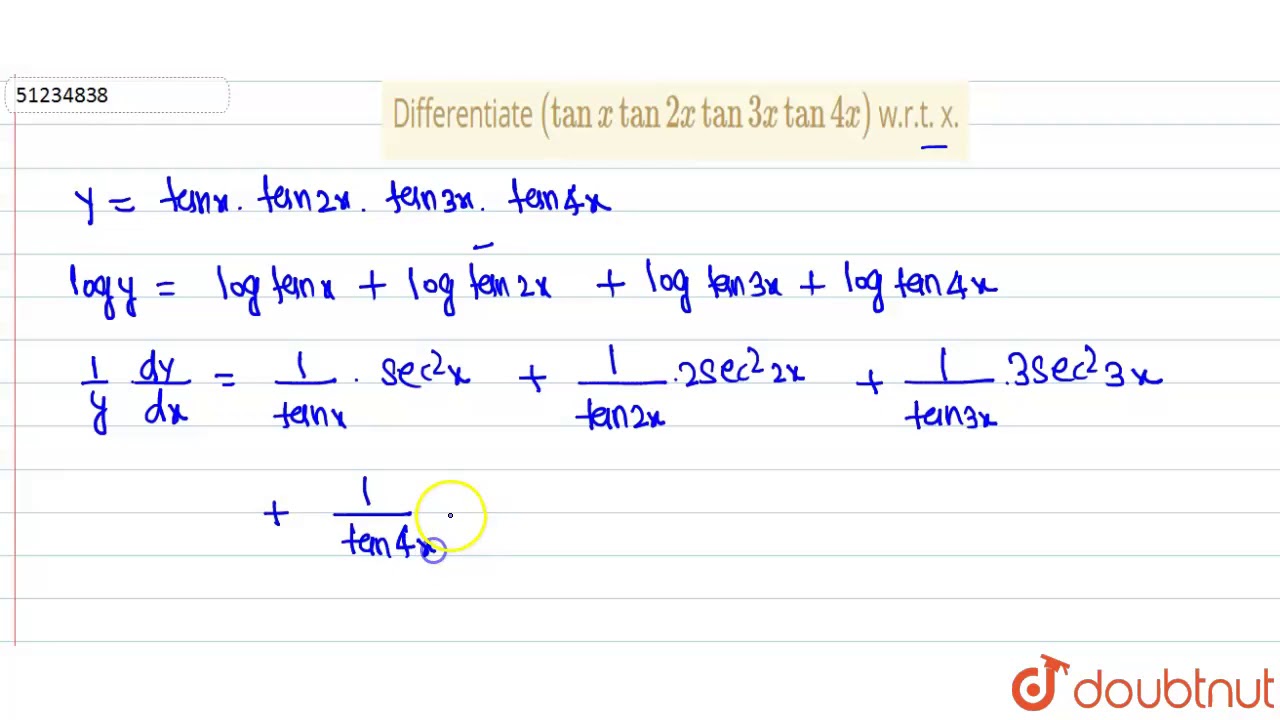 51234838
Differentiate (tan x tan 2x tan 3x tan 4x) w.r.t. x.
y = tanx . tan2x . tan3x . tan4x
logy = log tanx + log tan2x + log tan3x + log tan4x
1/y dy/dx = 1/tanx . sec²x + 1/tan2x . 2sec²2x + 1/tan3x . 3sec²3x
+ 1/tan4x
doubtnut